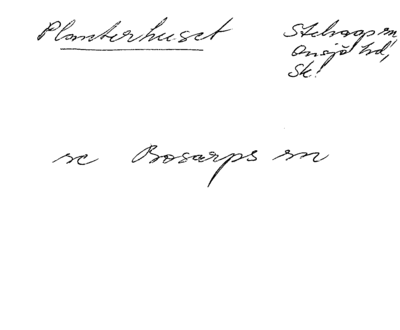 Planterhuset
Stehags sn,
Onsjö hd,
Sk.
se Bosarps sn